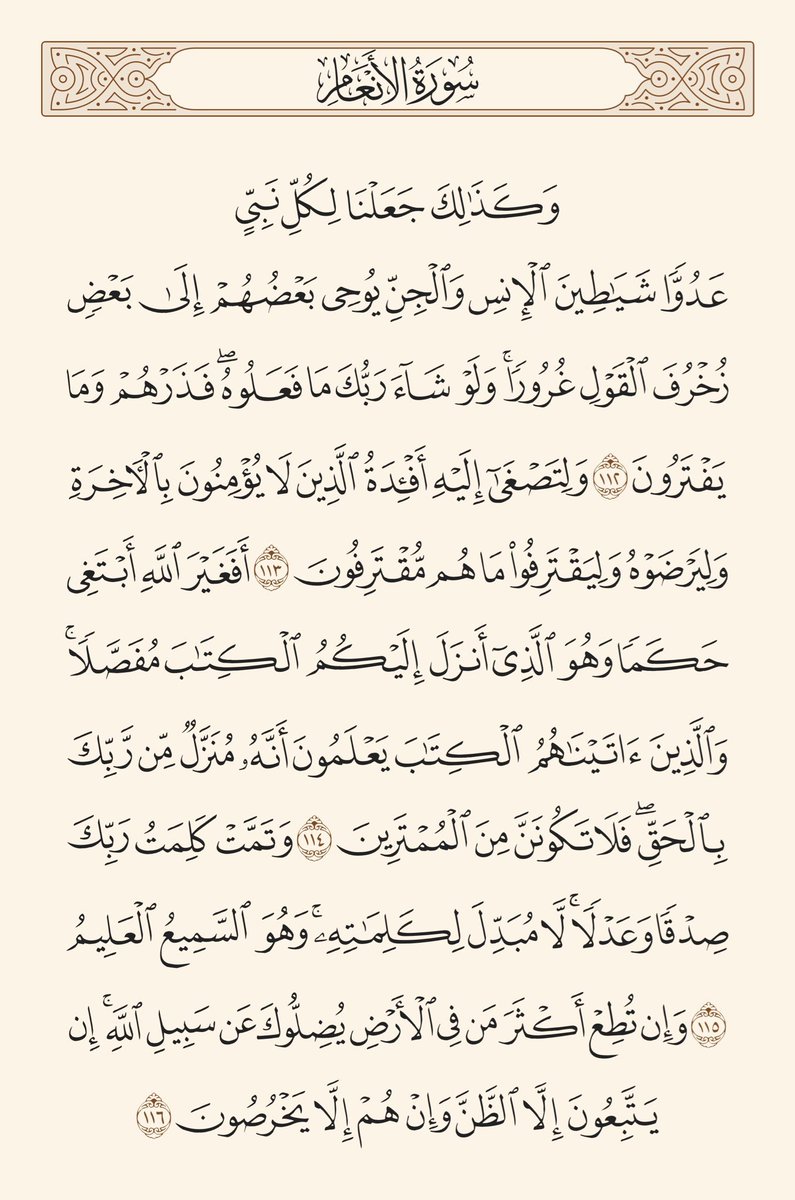 سُورَةُ الأَنْعَامِ
وَكَذَٰلِكَ جَعَلْنَا لِكُلِّ نَبِيٍّ
عَدُوًّا شَيَاطِينَ ٱلْإِنسِ وَٱلْجِنِّ يُوحِى بَعْضُهُمْ إِلَىٰ بَعْضٍ
زُخْرُفَ ٱلْقَوْلِ غُرُورًا ۚ وَلَوْ شَآءَ رَبُّكَ مَا فَعَلُوهُ ۖ فَذَرْهُمْ وَمَا
يَفْتَرُونَ ١١٢ وَلِتَصْغَىٰٓ إِلَيْهِ أَفْـِٔدَةُ ٱلَّذِينَ لَا يُؤْمِنُونَ بِٱلْـَٔاخِرَةِ
وَلِيَرْضَوْهُ وَلِيَقْتَرِفُوا۟ مَا هُم مُّقْتَرِفُونَ ١١٣ أَفَغَيْرَ ٱللَّهِ أَبْتَغِى
حَكَمًا وَهُوَ ٱلَّذِىٓ أَنزَلَ إِلَيْكُمُ ٱلْكِتَٰبَ مُفَصَّلًا ۚ
وَٱلَّذِينَ ءَاتَيْنَٰهُمُ ٱلْكِتَٰبَ يَعْلَمُونَ أَنَّهُۥ مُنَزَّلٌ مِّن رَّبِّكَ
بِٱلْحَقِّ ۖ فَلَا تَكُونَنَّ مِنَ ٱلْمُمْتَرِينَ ١١٤ وَتَمَّتْ كَلِمَتُ رَبِّكَ
صِدْقًا وَعَدْلًا ۚ لَّا مُبَدِّلَ لِكَلِمَٰتِهِۦ ۚ وَهُوَ ٱلسَّمِيعُ ٱلْعَلِيمُ
١١٥ وَإِن تُطِعْ أَكْثَرَ مَن فِى ٱلْأَرْضِ يُضِلُّوكَ عَن سَبِيلِ ٱللَّهِ ۚ إِن
يَتَّبِعُونَ إِلَّا ٱلظَّنَّ وَإِنْ هُمْ إِلَّا يَخْرُصُونَ ١١٦